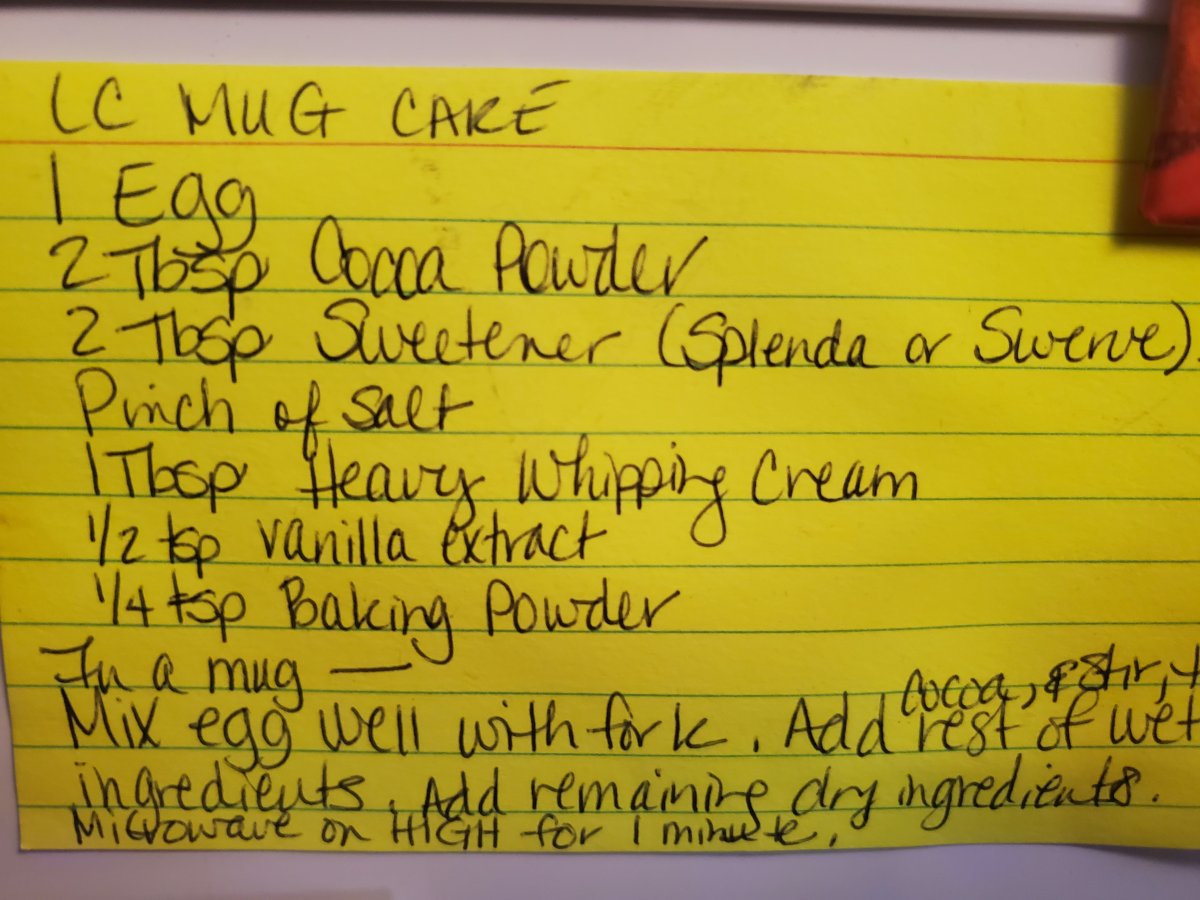 LC MUG CAKE
1 Egg
2 Tbsp Cocoa Powder
2 Tbsp Sweetener (Splenda or Swerve)
Pinch of salt
1 Tbsp Heavy Whipping Cream
1/2 tsp vanilla extract
1/4 tsp Baking Powder
In a mug —
cocoa, & stir, +
Mix egg well with fork. Add rest of wet
ingredients. Add remaining dry ingredients.
Microwave on HIGH for 1 minute.